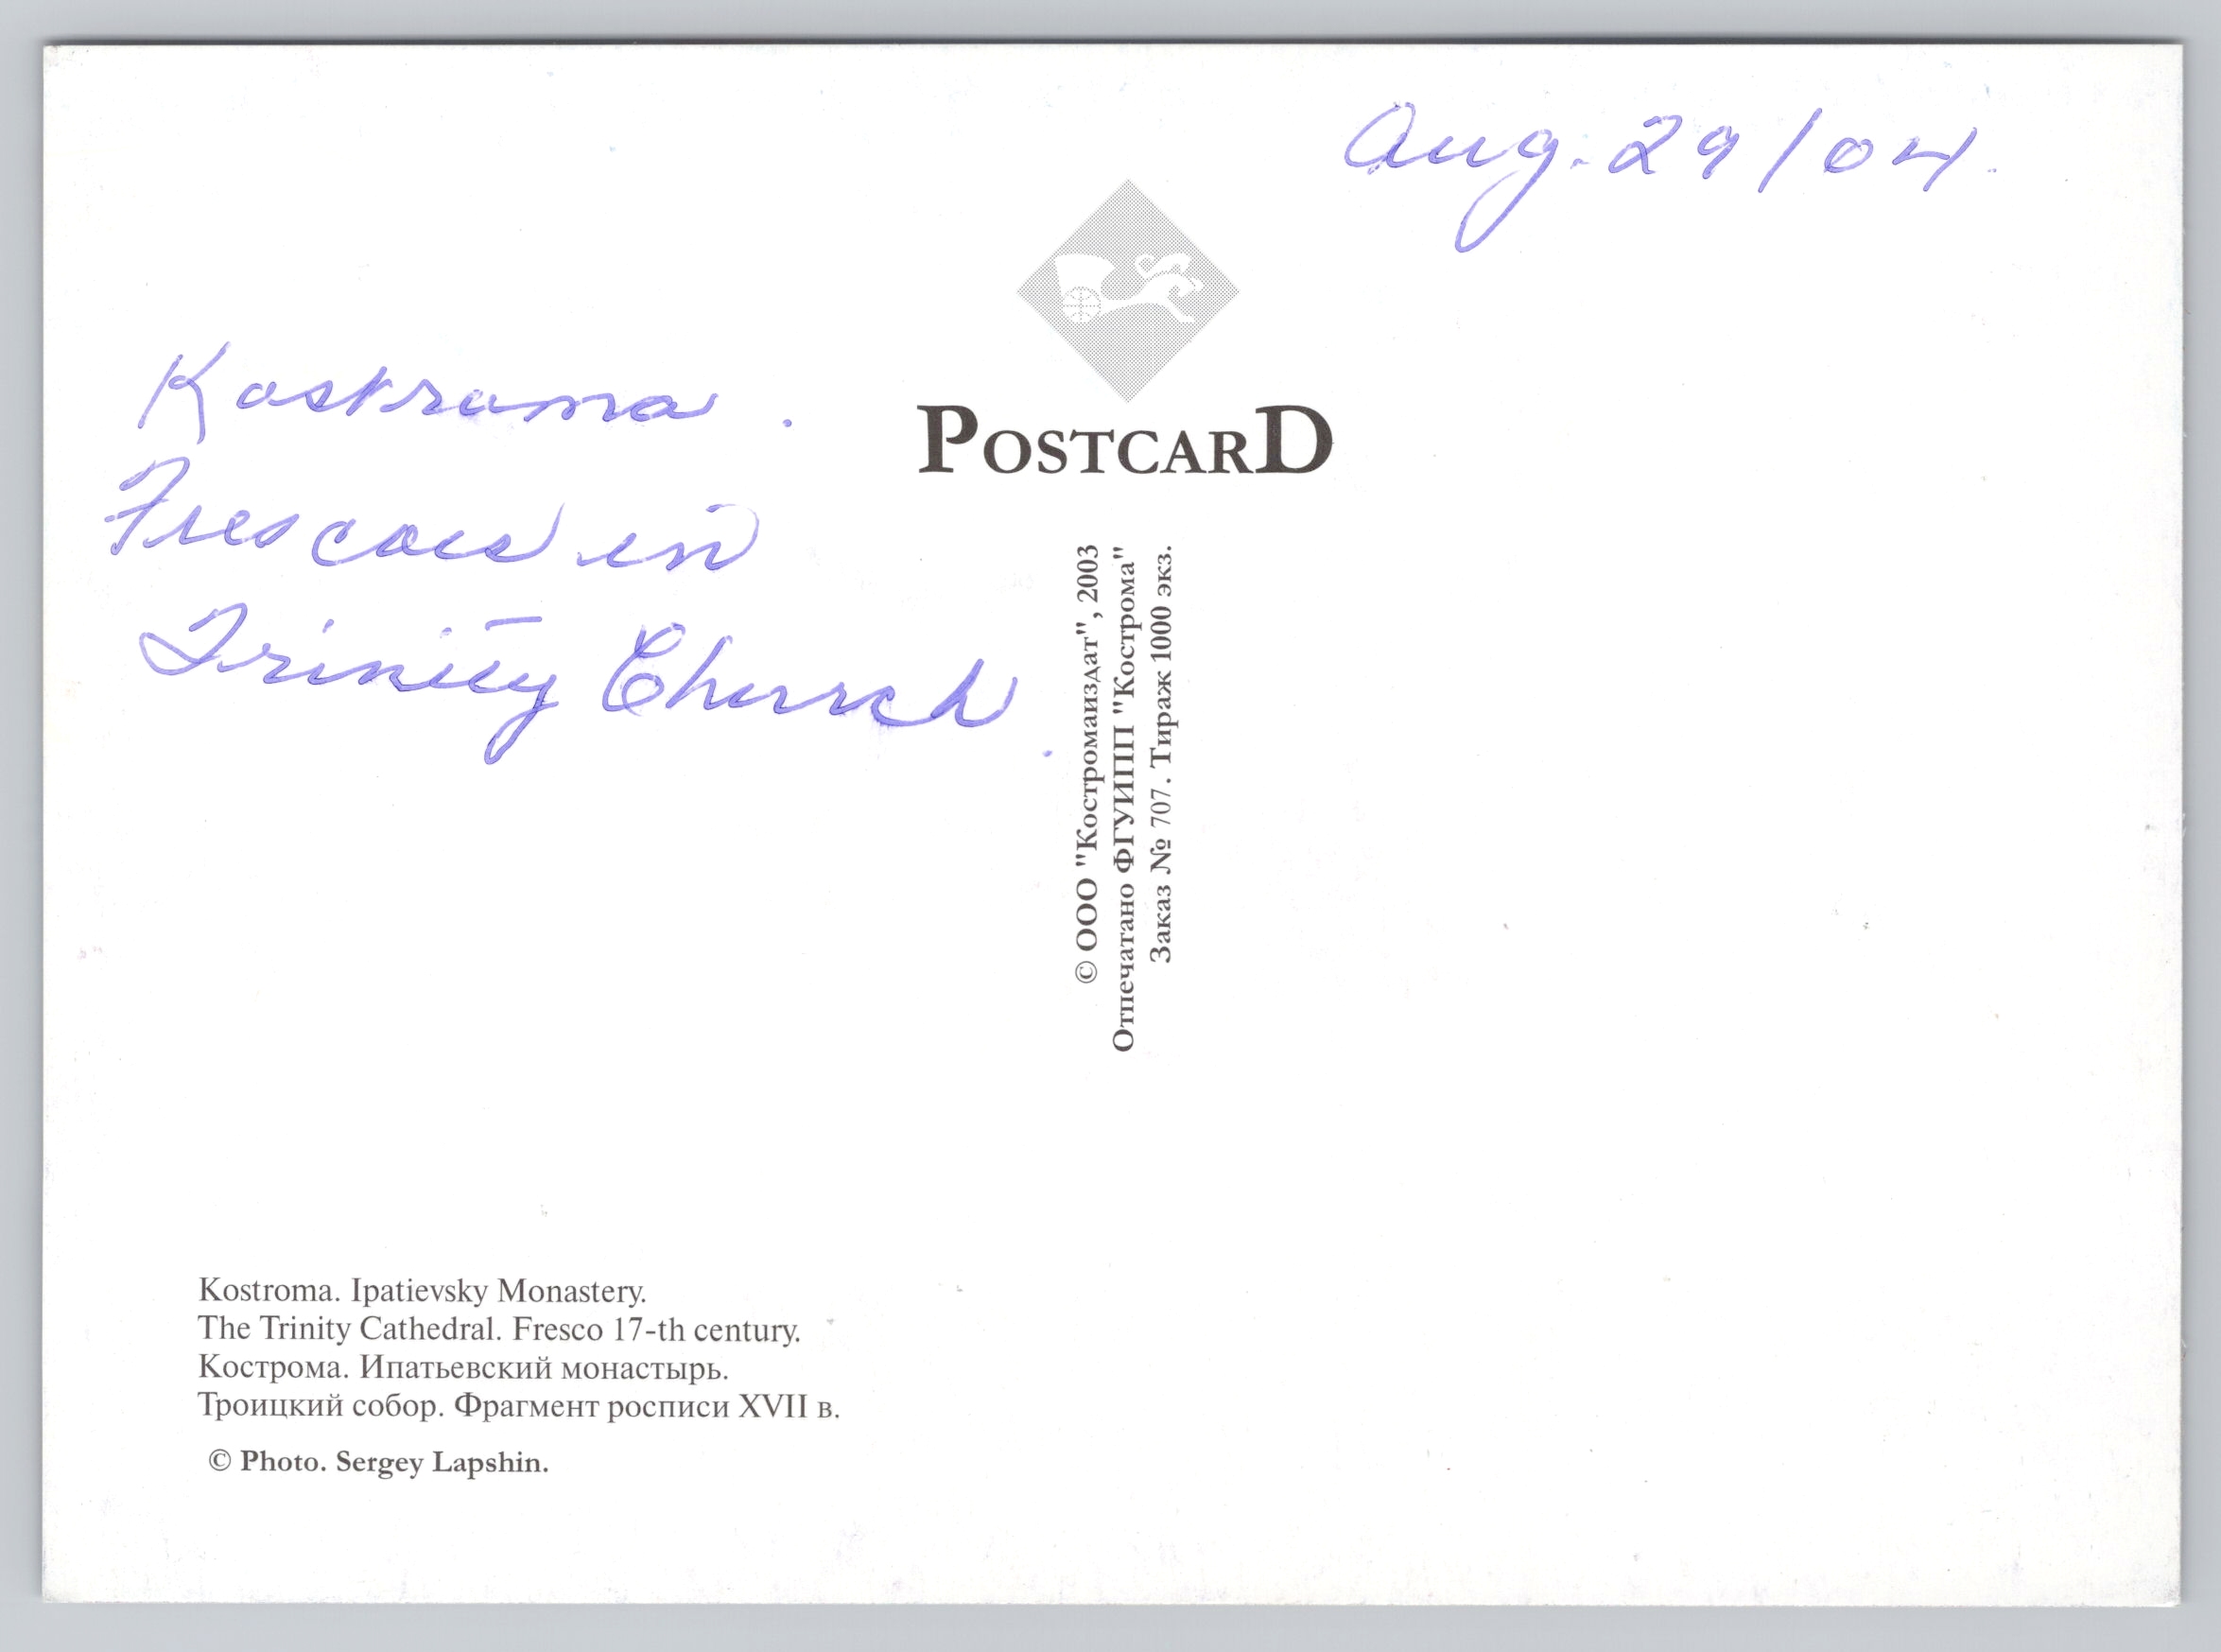 Aug. 29/04.
Kostroma.
Frescoes in
Trinity Church.
POSTCARD
© ООО "Костромаиздат", 2003
Отпечатано ФГУИПП "Кострома"
Заказ № 707. Тираж 1000 экз.
Kostroma. Ipatievsky Monastery.
The Trinity Cathedral. Fresco 17-th century.
Кострома. Ипатьевский монастырь.
Троицкий собор. Фрагмент росписи XVII в.
© Photo. Sergey Lapshin.